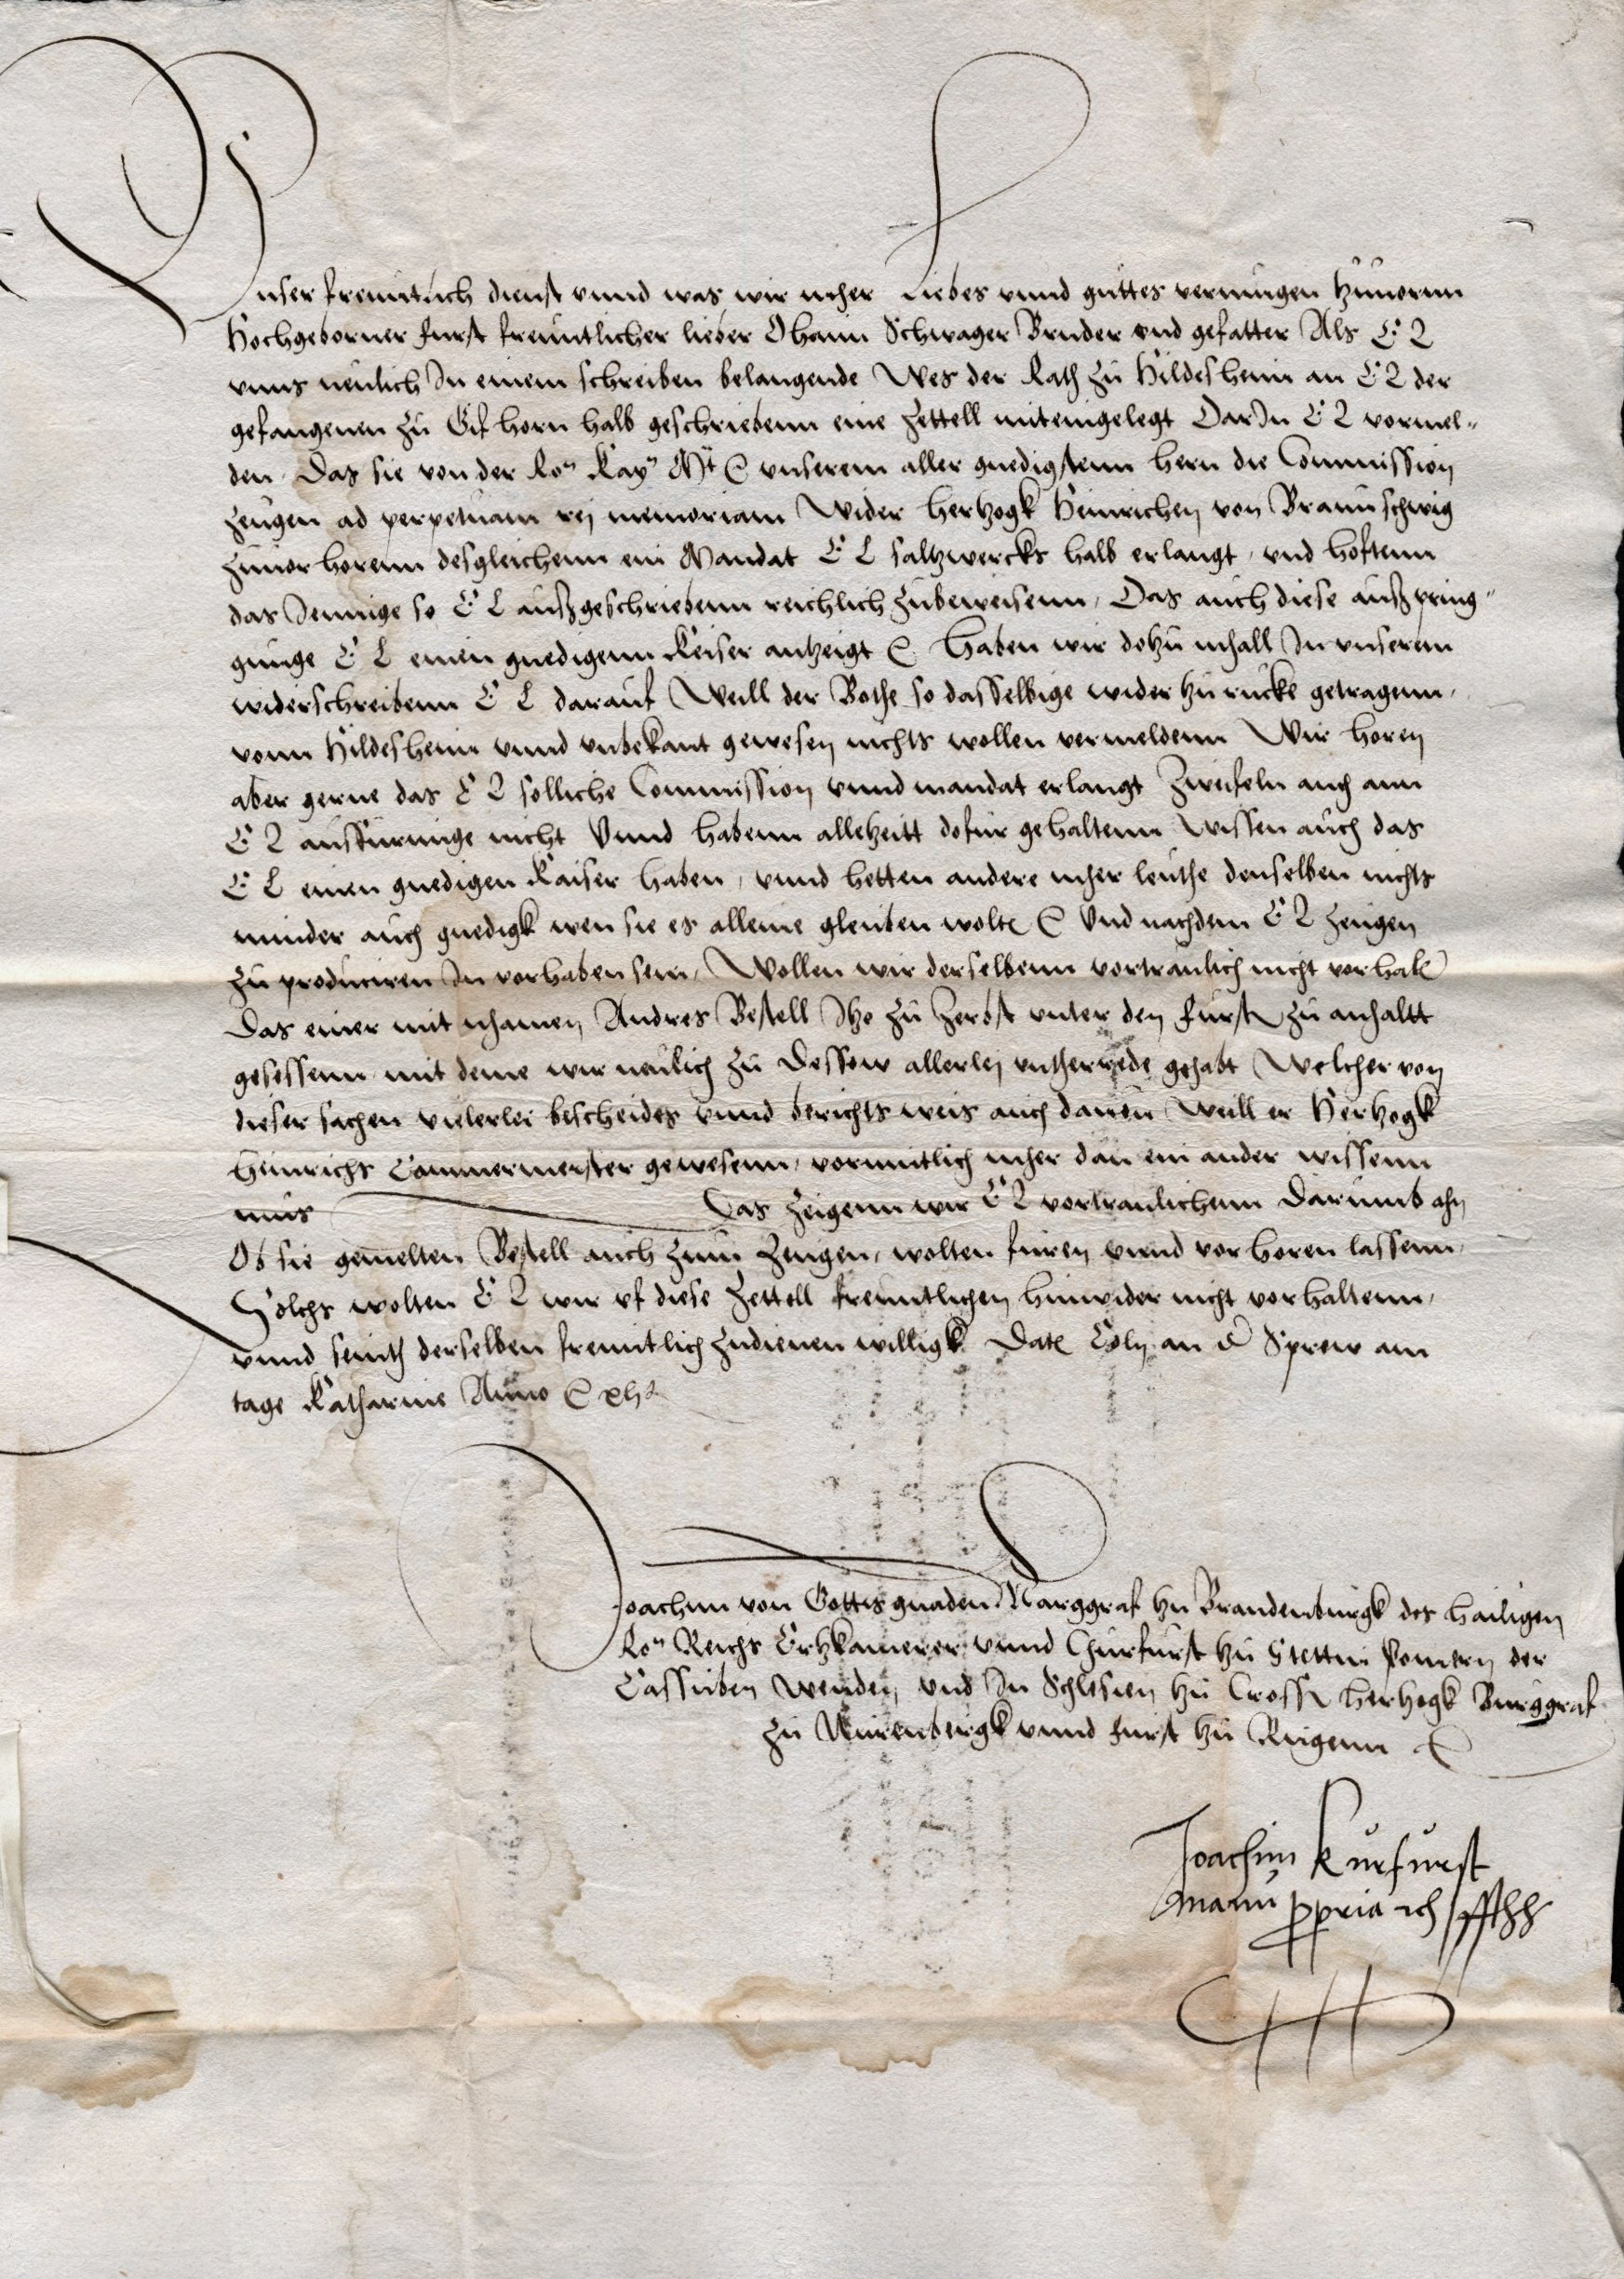 Unser freuntlich dienst vnnd was wir meher Liebes vnnd guttes vermugen zuuornn
Hochgeborner furst freuntlicher lieber Ohaim Schwager Bruder vnd gefatter Als E L
vnns neulich In einem schreiben belangende Wes der Rath zu Hildesheim an E L der
gefangenen zu Gifhorn halb geschriebenn eine zettell miteingelegt DarIn E L vormel-
den Das sie von der Ro Kay Mt c vnserem aller gnedigstenn hern die Commission
zeugen ad perpetuam rej memoriam Wider hertzogk Heinrichen von Braunschwig
zuuorhorenn desgleichenn ein Mandat E L saltzwercks halb erlangt, vnd hoftenn
das Jennige so E L außgeschriebenn reichlich zubeweisenn, Das auch diese außpring-
gunge E L einen gnedigenn Keiser antzeigt c haben wir dohtzumhall In vnserem
widerschreibenn E L darauf Weill der Bothe so dasselbige wider zu rucke getragenn,
vonn Hildesheim vnnd vnbekant gewesen nichts wollen vermeldenn Wir horen
aber gerne das E L solliche Commission vnnd mandat erlangt Zweifeln auch ann
E L ausfurunge nicht Vnnd habenn allezeitt dofur gehaltenn Wissen auch das
E L einen gnedigen Kaiser haben, vnnd hetten andere meher leuthe denselben nichts
minder auch gnedigk wen sie es alleine gleuben wolten c Vnd nachdem E L zeugen
zu produciren In vorhaben sein, Wollen wir derselbenn vortraulich nicht vorhalten
Das einer mit nhamen Andres Bestell Itzo zu Zerbst vnter den fursten zu anhaltt
gesessenn mit deme wir neulich zu Dessow allerlej vntherrede gehabt Welcher von
dieser sachen vielerlei bescheides vnnd berichts weis auch dauon Weill er Hertzogk
Heinrichs Cammermeister gewesenn, vormutlich meher dan ein ander wissenn
mus Das zeigenn wir E L vortraulichenn Darumb ahn
Ob sie gemelten Bestell auch zum zeugen, wolten furen vnnd vorhoren lassenn,
Solchs wolten E L wir vf diese zettell freuntlichen hinwider nicht vorhaltenn,
vnnd seinth derselben freuntlich zudienen willigk Date Coln an d Sprew am
tage Katharine Anno c xlj

Joachim von Gottes gnaden Marggraf zu Brandenburgk des hailigen
Ro Reichs Ertzkamerer vnnd Churfurst zu Stettin Pomern der
Cassuben Wenden vnd In Schlesien zu Crossen hertzogk Burggraf
zu Nurenbergk vnnd furst zu Rugenn c
Joachim kurfurst
manu ppria